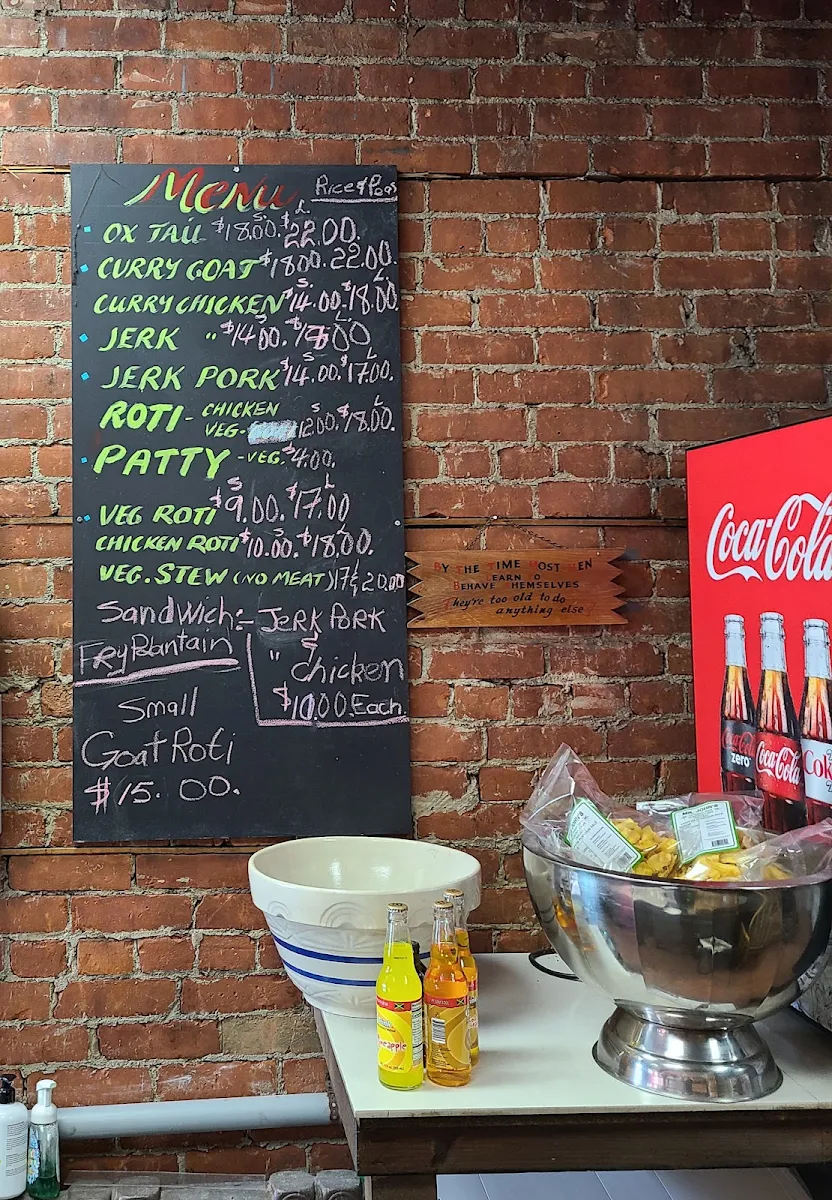 Menu Rice & Peas
S. L
OX TAIL $18.00. $22.00.
CURRY GOAT $18.00. 22.00.
S. L
CURRY CHICKEN $14.00. $18.00.
S L
JERK " $14.00.
S L
JERK PORK $14.00. $17.00.
S L
ROTI - CHICKEN
VEG- 12.00. $18.00.
PATTY - VEG. $4.00.
S L
VEG ROTI $9.00. $17.00
CHICKEN ROTI $10.00. $18.00.
VEG. STEW (NO MEAT) 17 & 20.00
Sandwich:- JERK PORK
Fry Plantain
" Chicken
$10.00. Each.
Small
Goat Roti
$15.00.
BY THE TIME MOST MEN
LEARN TO
BEHAVE THEMSELVES
They're too old to do
anything else
Coca-Cola
Coca-Cola
zero
Coca-Cola
Coke
pineapple